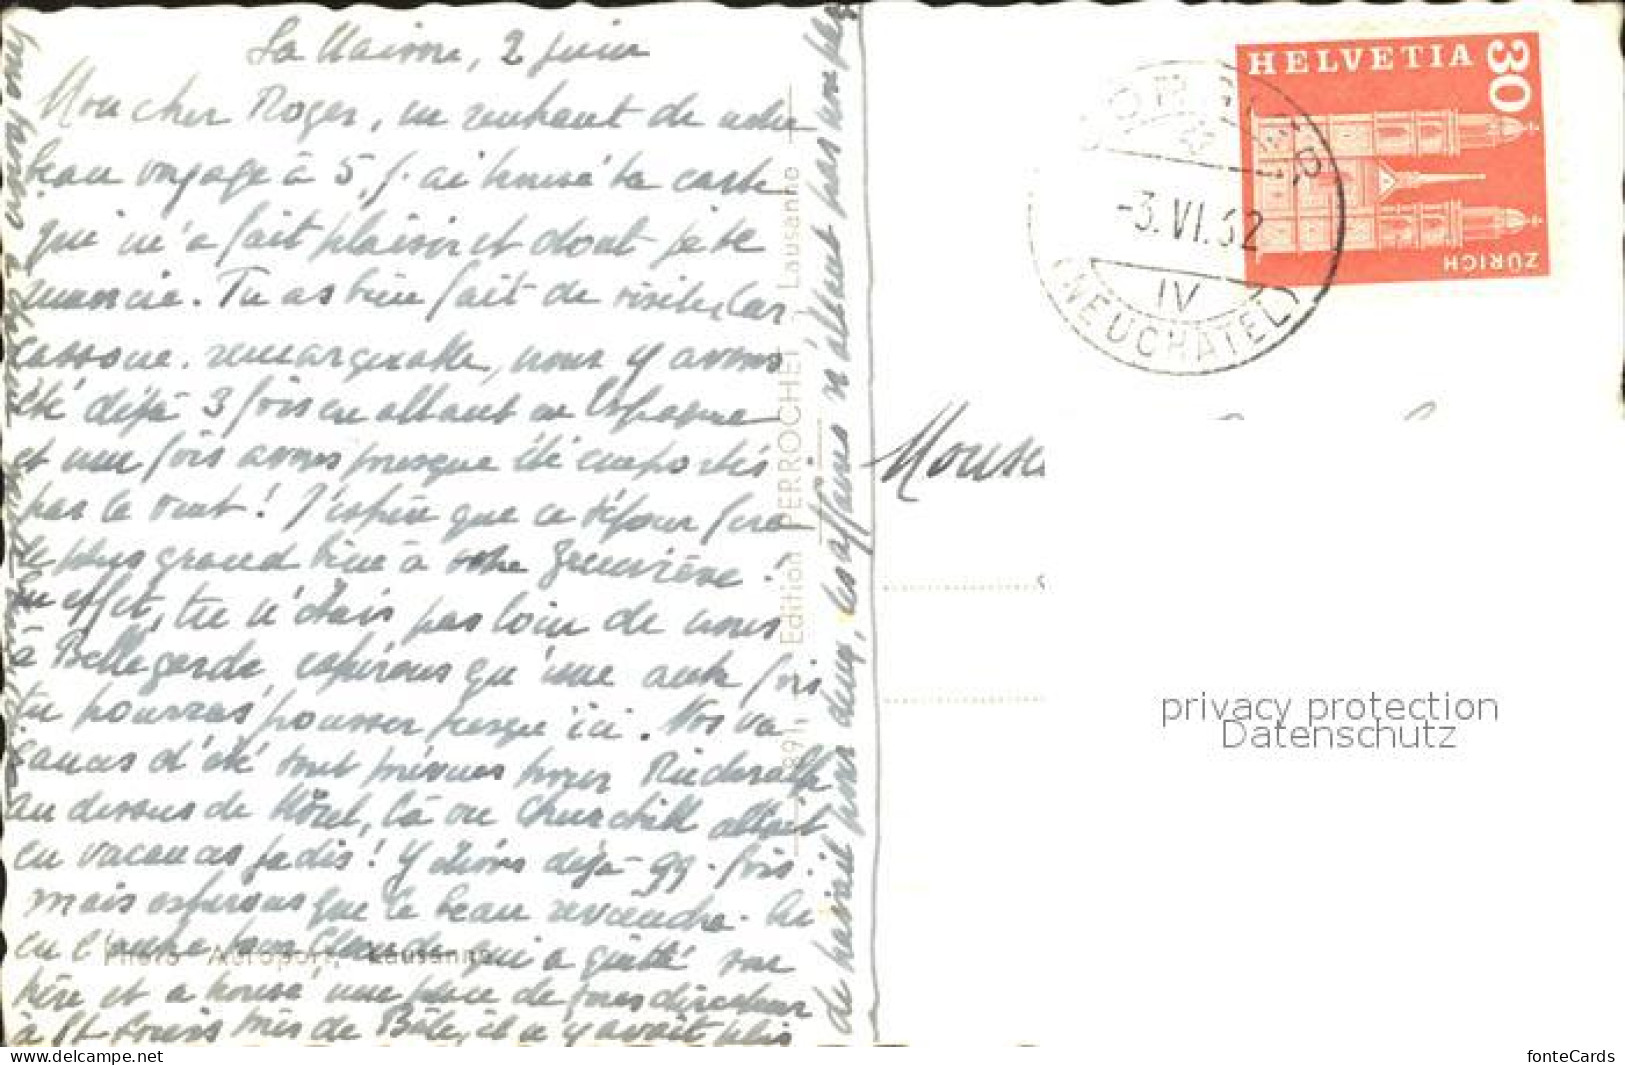 La Mairie, 2 juin
Mon cher Roger, en rentrant de notre
beau voyage à 5, j'ai trouvé ta carte
qui m'a fait plaisir et dont je te
remercie. Tu as bien fait de visiter Car
cassone. remarquable, nous y avons
été déjà 3 fois en allant en Espagne
et une fois avons presque été emportés
par le vent! J'espère que ce séjour fera
le plus grand bien à votre Geneviève!
En effet, tu n'étais pas loin de nous
à Bellegarde, espérons qu'une autre fois
tu pourras pousser jusqu'ici. Nos va-
cances d'été sont prévues pour Riederalp
au dessus de Mörel, là où Churchill allait
en vacances jadis! Y étions déjà qq. fois.
mais espérons que le beau reviendra.
en l'autre Claude qui a quitté son
père et a trouvé une place de sous directeur
à St Louis près de Bâle, il n'y avait plus
de travail pour deux, les affaires n'allant pas non plus
891 Edition PERROCHET, Lausanne
Photo Aéroport, Lausanne
HELVETIA
30
ZÜRICH
-3.VI.62
IV
(NEUCHATEL)
privacy protection
Datenschutz
www.delcampe.net
fonteCards